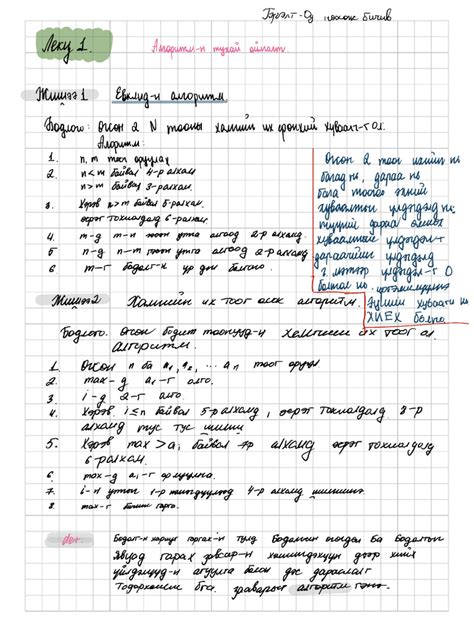 Гэрэлт-Од нохой бичив
Лекц 1.
Алгоритм-н тухай ойлголт.
Жишээ 1 Евклид-н алгоритм.
Бодлого: Өгсөн 2 N тооны хамгийн их ерөнхий хуваагч-г ол.
Алгоритм:
1. n, m тоог оруулах
2. n<m байвал 4-р алхам
n>m байвал 3-р алхам.
3. Хэрэв n>m байвал 5-р алхам.
эсрэг тохиолдолд 6-р алхам
4. m-д m-n тоон утга олгоод 2-р алхамд.
5. n-д n-m тоон утга олгоод 2-р алхамд
6. m-г бодлог-н үр дүн болгоно.
Өгсөн 2 тоог
хуваалтын үлдэгдэл нь
дараагийн үлдэгдэлд
г.мэтээр үлдэгдэл-г 0
болтол нь
хуваагч нь
ХИЕХ болно.
Жишээ 2 Хамгийн их тоог олох алгоритм.
Бодлого: Өгсөн бодит тоонууд-н хамгийн их тоог ол.
алгоритм.
1. Өгсөн n ба a₁, a₂, ... aₙ тоог оруул
2. max-д a₁-г олго.
3. i-д 2-г олго.
4. Хэрэв i≤n байвал 5-р алхамд, эсрэг тохиолдолд 8-р
алхамд тус тус шилжи
5. Хэрэв max > aᵢ байвал 7-р алхамд эсрэг тохиолдолд
6-р алхам.
6. max-д aᵢ-г орлуулна.
7. i-н утгыг 1-р нэмэгдүүлээд 4-р алхамд шилжинэ.
8. max-г болгон гарга.
def Бодлог-н хариуг гаргах-н тулд бодлогын өгөгдөл ба бодолтын
явцад гарах завсар-н дээр хийх
үйлдлүүд-н агуулга болон дэс дараалал
тодорхойлж бга. дүрмийг алгоритм гэнэ.